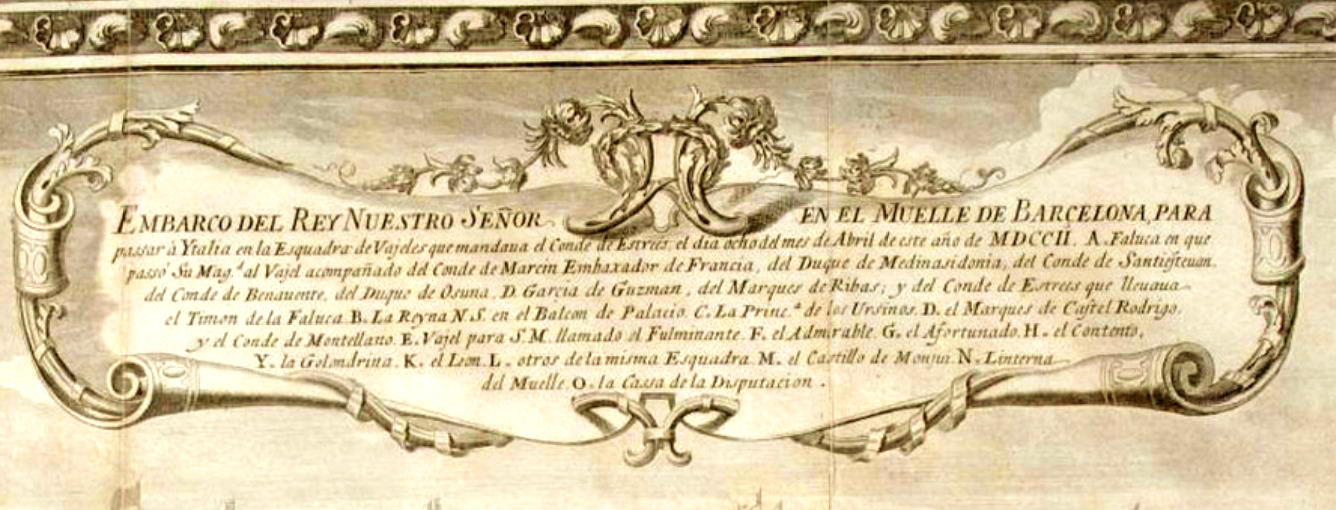 EMBARCO DEL REY NUESTRO SEÑOR EN EL MUELLE DE BARCELONA, PARA
passar à Ytalia en la Esquadra de Vajeles que mandaua el Conde de Estrees, el dia ocho del mes de Abril de este año de MDCCII. A. Faluca en que
passò Su Mag.ᵈ al Vajel acompañado del Conde de Marcin Embaxador de Francia, del Duque de Medinasidonia, del Conde de Santisteuan,
del Conde de Benauente, del Duque de Osuna, D. Garcia de Guzman, del Marques de Ribas; y del Conde de Estrees que lleuaua
el Timon de la Faluca. B. La Reyna N.S. en el Balcon de Palacio. C. La Princ.ᵃ de los Ursinos. D. el Marques de Castel Rodrigo,
y el Conde de Montellano. E. Vajel para S.M. llamado el Fulminante. F. el Admirable. G. el Afortunado. H. el Contento.
Y. la Golondrina. K. el Leon. L. otros de la misma Esquadra. M. el Castillo de Monjui. N. Linterna
del Muelle. O. la Cassa de la Disputacion.